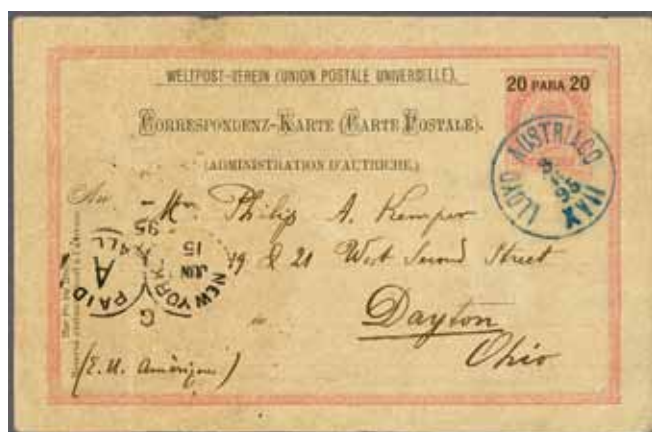 WELTPOST-VEREIN (UNION POSTALE UNIVERSELLE).
20 PARA 20
CORRESPONDENZ-KARTE (CARTE POSTALE).
(ADMINISTRATION D'AUTRICHE.)
LLOYD AUSTRIACO
95
XVII
An
Mr. Philip A. Kemper
19 & 21 West Second Street
in
Dayton
Ohio
(E. U. Amérique)
NEW YORK
JUN
15
95
G
PAID
A
ALL